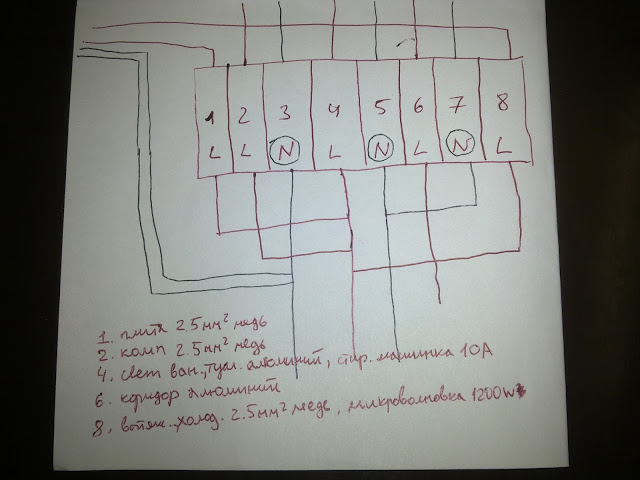 1 2 3 4 5 6 7 8
L L N L N L N L
1. плита 2.5мм² медь
2. комп 2.5мм² медь
4. свет ван., туал. алюминий, стир. машинка 10А
6. коридор алюминий
8. вытяж., холод. 2.5мм² медь, микроволновка 1200W